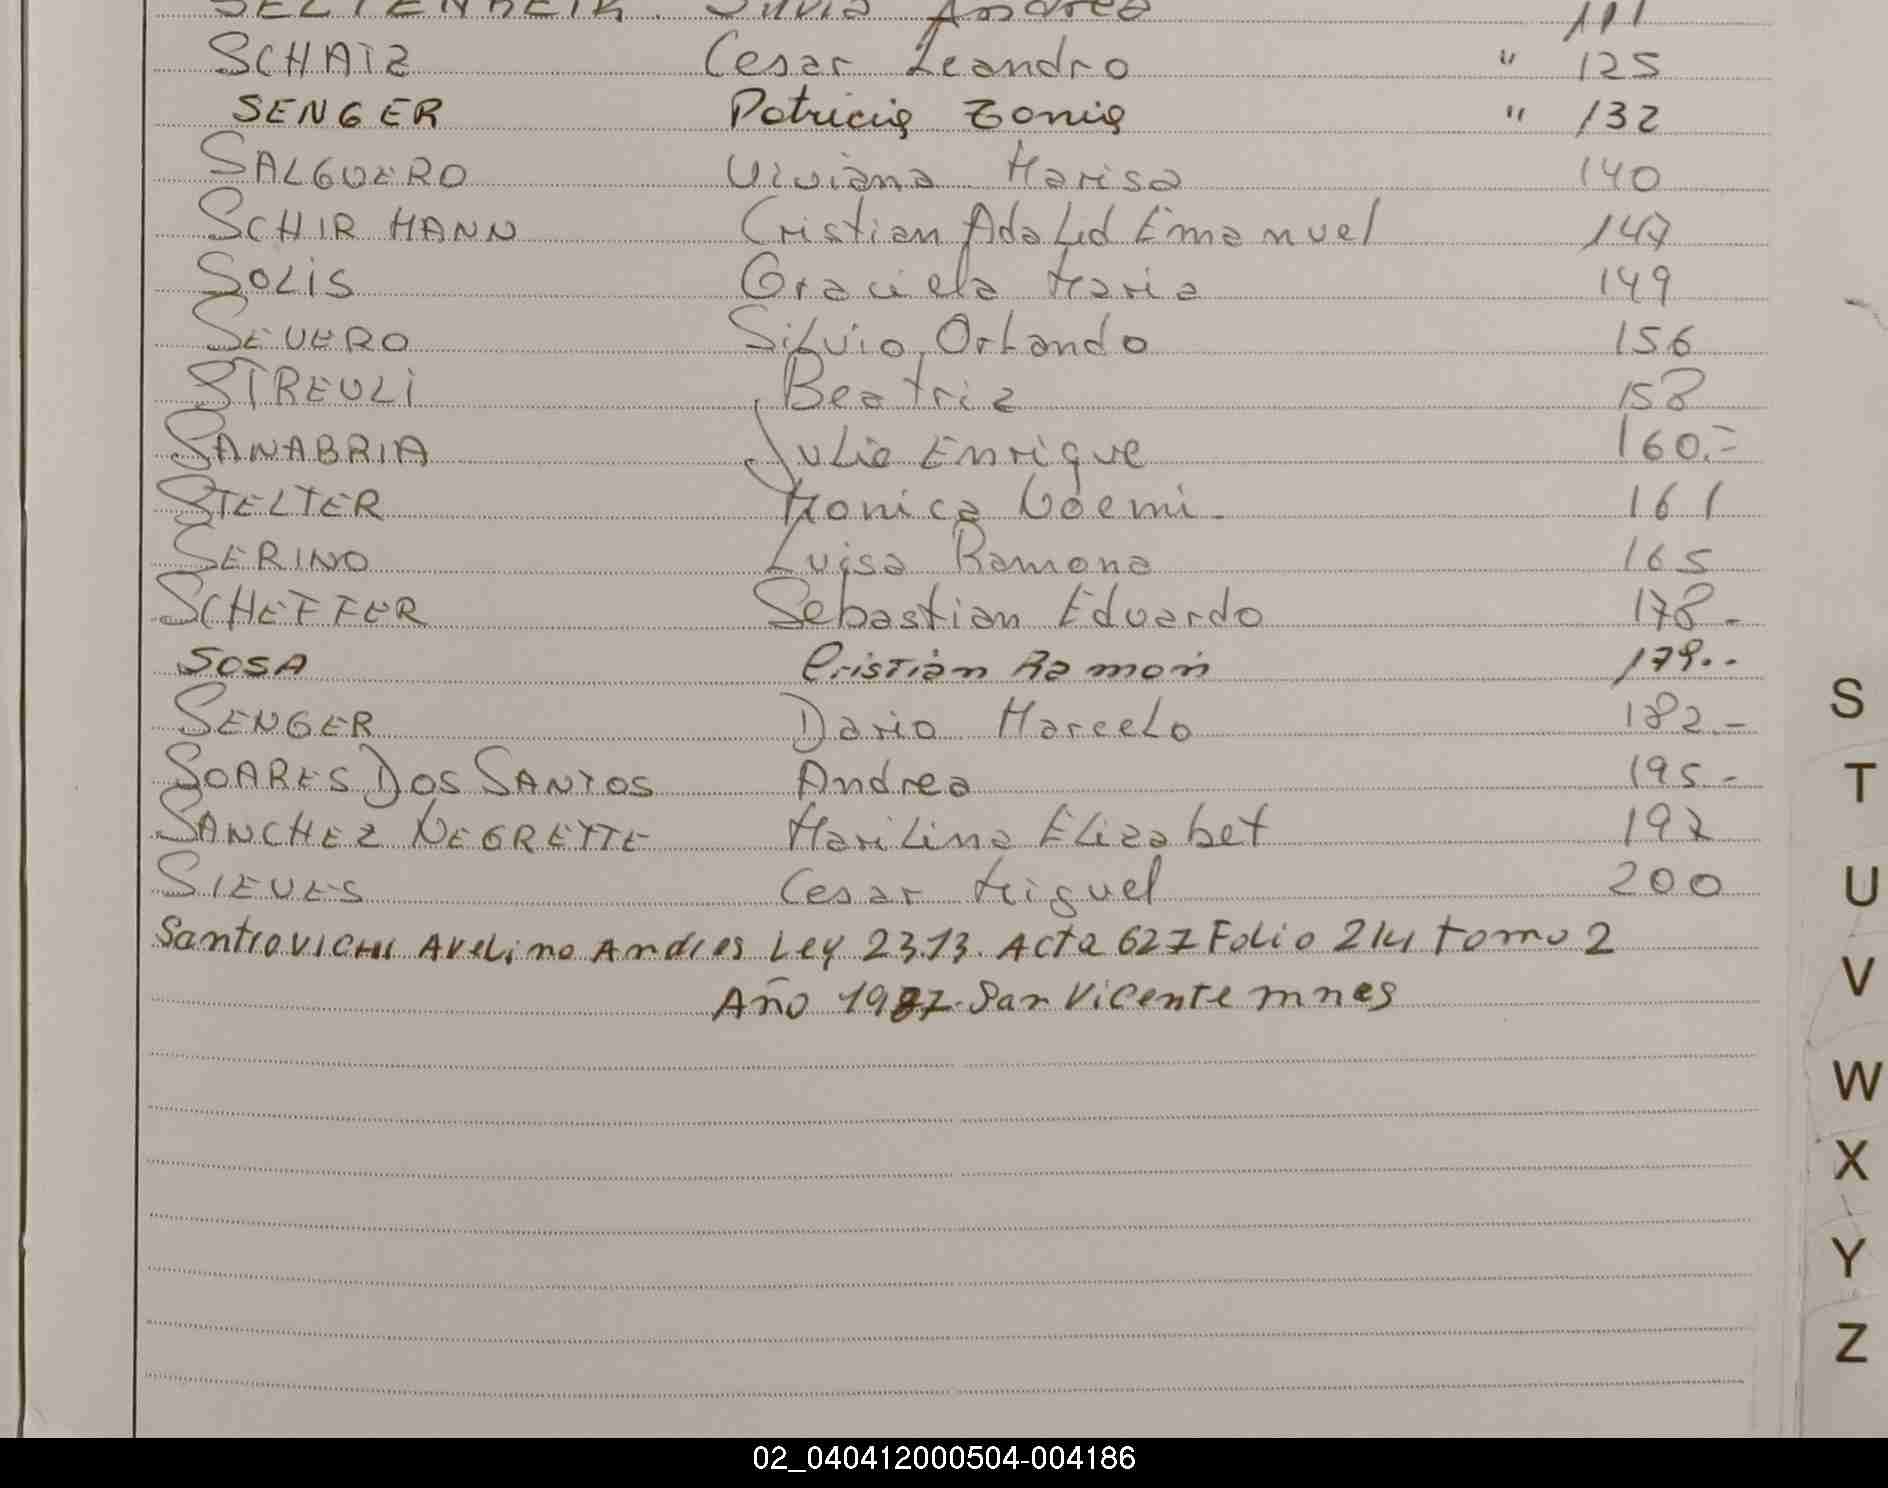 Silvia Andrea 111
SCHATZ Cesar Leandro " 125
SENGER Patricia Zonia " 132
SALGUERO Viviana Marisa 140
SCHIRMANN Cristian Adalid Emanuel 147
SOLIS Graciela Maria 149
SEVERO Silvio Orlando 156
STREULI Beatriz 158
SANABRIA Julio Enrique 160.=
STELTER Monica Noemi - 161
SERINO Luisa Ramona 165
SCHEFFER Sebastian Eduardo 178.-
SOSA Cristian Ramon 179..
SENGER Dario Marcelo 182.-
SOARES DOS SANTOS Andrea 195.-
SANCHEZ NEGRETTE Marilina Elizabet 197
SIEVES Cesar Miguel 200
Avelino Andres Ley 2313. Acta 627 Folio 214 tomo 2
Año 1987. San Vicente mnes
S
T
U
V
W
X
Y
Z
02_040412000504-004186